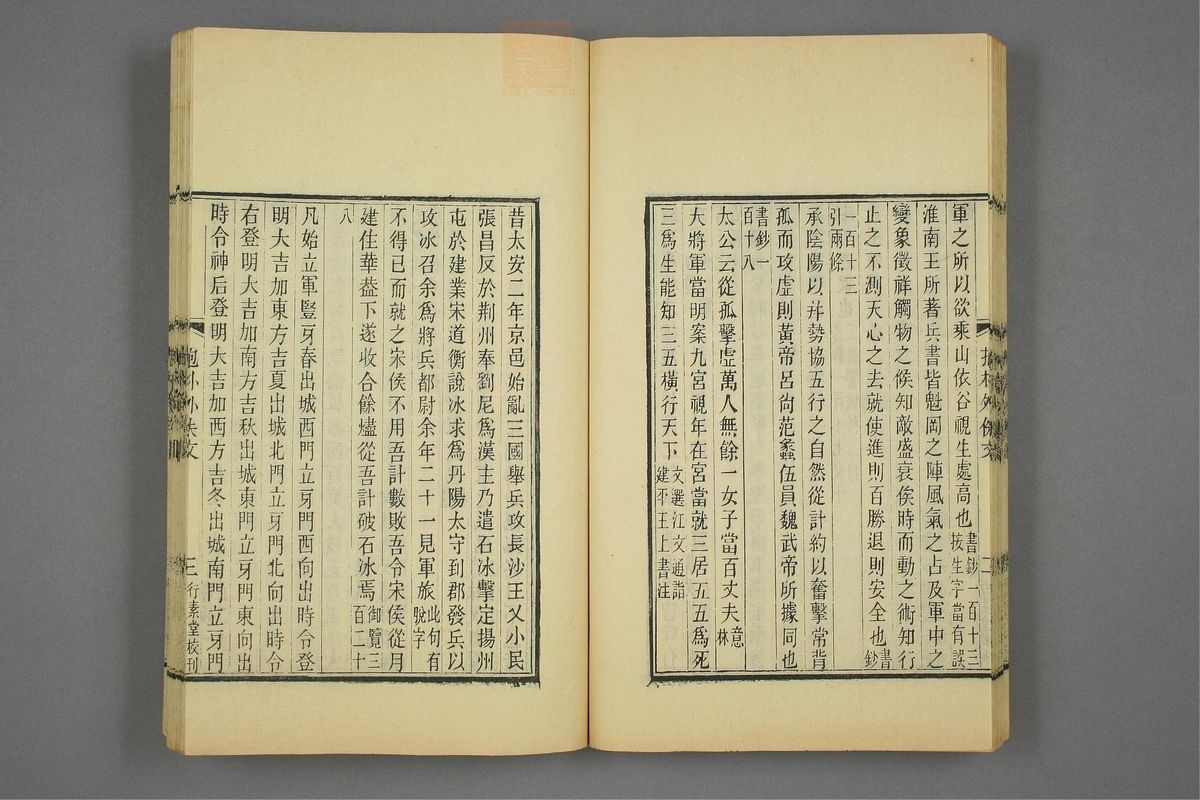 軍之所以欲乘山依谷視生處高也書鈔一百十三按生字當有誤
淮南王所著兵書皆魁岡之陣風氣之占及軍中之
變象徵祥觸物之候知敵盛衰俟時而動之術知行
止之不測天心之去就使進則百勝退則安全也書鈔
一百十三引兩條
承陰陽以幷勢協五行之自然從計約以奮擊常背
孤而攻虛則黃帝呂尙范蠡伍員魏武帝所據同也
書鈔一百十八
太公云從孤擊虛萬人無餘一女子當百丈夫意林
大將軍當明案九宮視年在宮當就三居五五爲死
三爲生能知三五橫行天下文選江文通詣建平王上書注
二
昔太安二年京邑始亂三國舉兵攻長沙王乂小民
張昌反於荆州奉劉尼爲漢主乃遣石冰擊定揚州
屯於建業宋道衡說冰求爲丹陽太守到郡發兵以
攻冰召余爲將兵都尉余年二十一見軍旅此句有脫字
不得已而就之宋侯不用吾計數敗吾令宋侯從月
建住華葢下遂收合餘燼從吾計破石冰焉御覽三百二十
八
凡始立軍豎牙春出城西門立牙門西向出時令登
明大吉加東方吉夏出城北門立牙門北向出時令
右登明大吉加南方吉秋出城東門立牙門東向出
時令神后登明大吉加西方吉冬出城南門立牙門
三 行素堂校刊